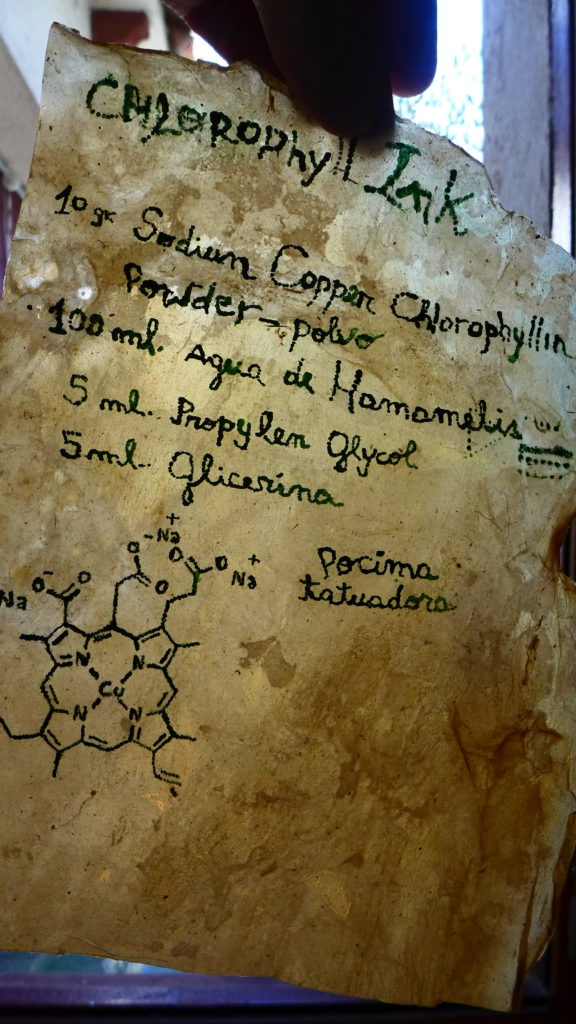 Chlorophyll Ink
10 gr Sodium Copper Chlorophyllin
Powder - Polvo
100 ml. Agua de Hamamelis
5 ml. Propylen Glycol
5 ml. Glicerina
Pocima
tatuadora
O Na +
O
+ -Na
O
O
O
O
O -
Na
N
N
Cu
N
N